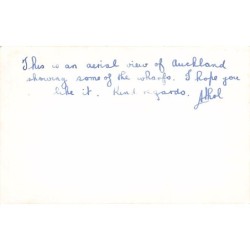 This is an aerial view of Auckland
showing some of the wharfs. I hope you
like it. Kind regards.
Athol